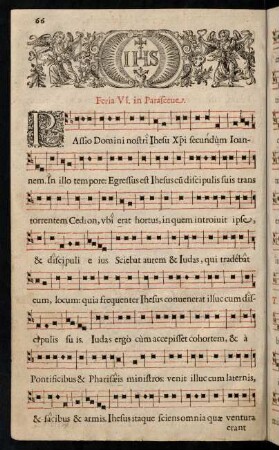 66
IHS
Feria VI. in Parasceue.
PAssio Domini nostri Ihesu Xp̃i secundùm Ioan-
nem. In illo tempore: Egressus est Ihesus cũ discipulis suis trans
torrentem Cedron, vbi erat hortus, in quem introiuit ipse,
& discipuli e ius Sciebat autem & Iudas, qui tradebãt
eum, locum: quia frequenter Ihesus conuenerat illuc cum dis-
cipulis su is. Iudas ergo cùm accepisset cohortem, & à
Pontificibus & Pharisæis ministros: venit illuc cum laternis,
& facibus & armis. Ihesus itaque sciens omnia quæ ventura
erant